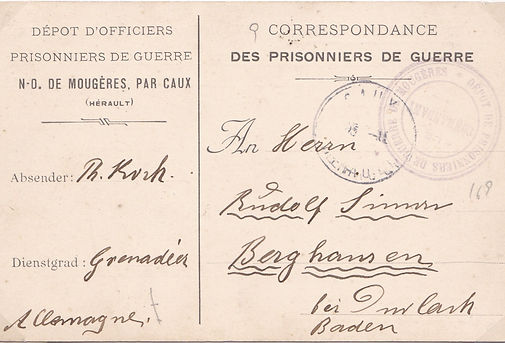 DÉPOT D'OFFICIERS
PRISONNIERS DE GUERRE
N-D. DE MOUGÈRES, PAR CAUX
(HÉRAULT)
Absender: Th. Koch.
Dienstgrad: Grenadier
Allemagne.
CORRESPONDANCE
DES PRISONNIERS DE GUERRE
CAUX
An Herrn
Rudolf Simon
Berghausen
bei Durlach
Baden
169